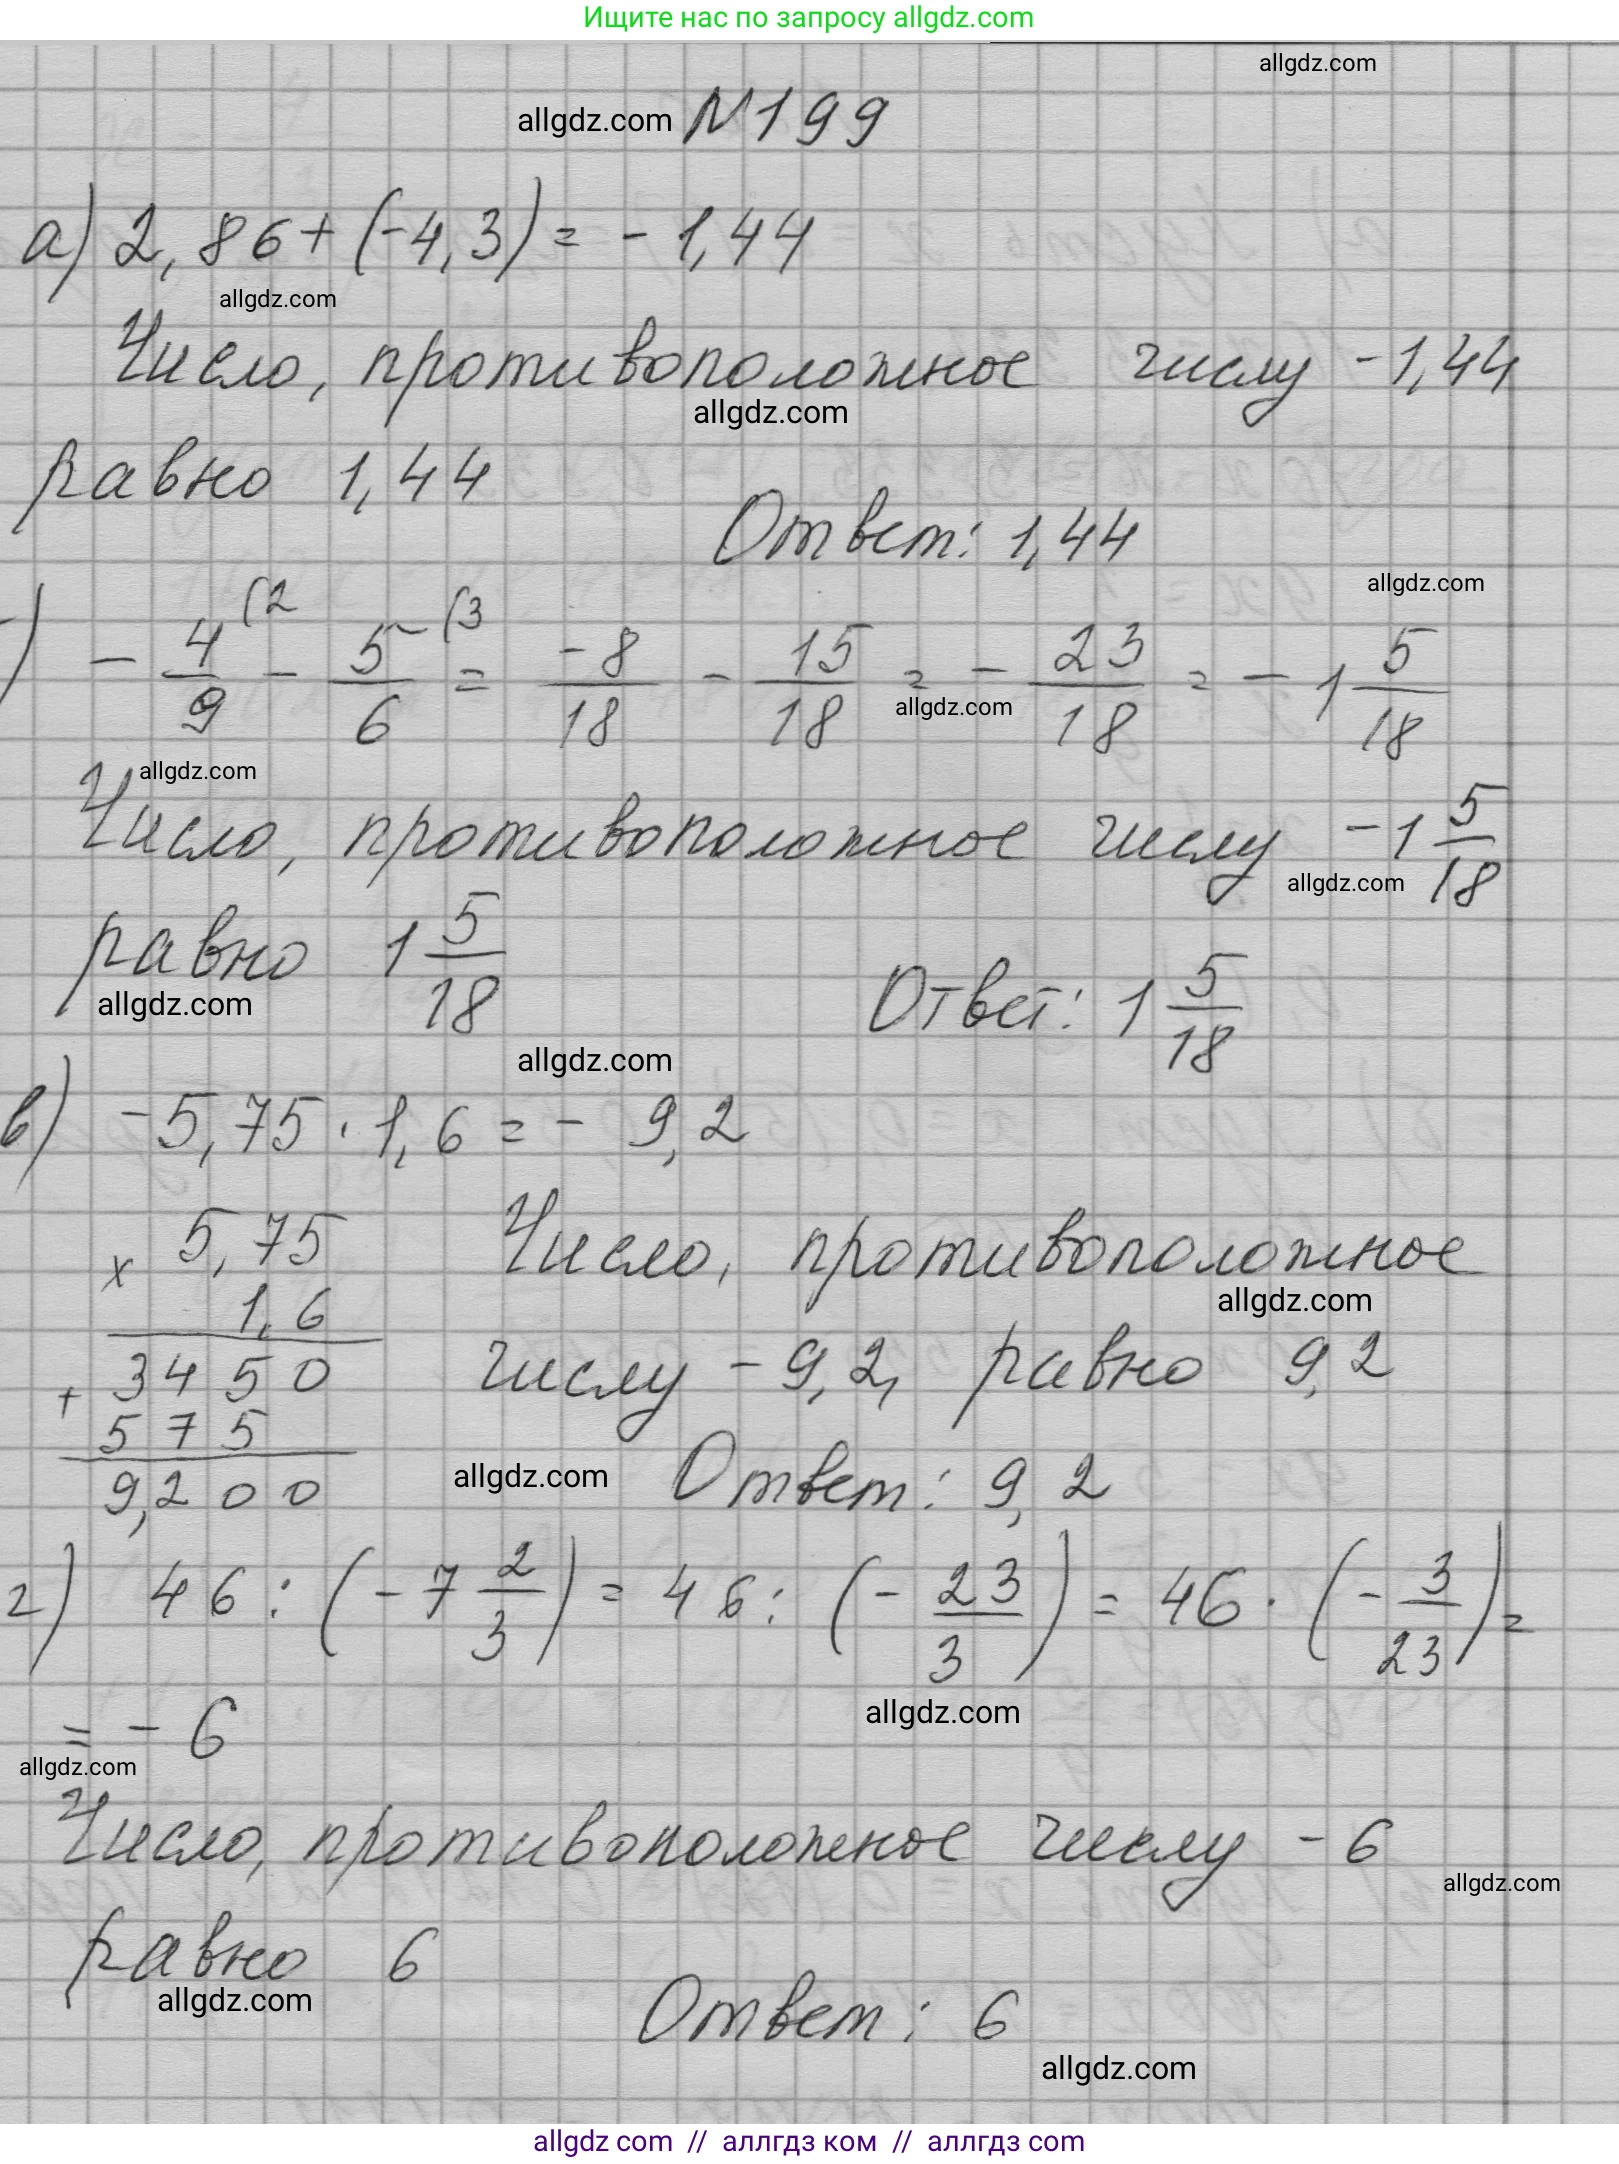 Ищите нас по запросу allgdz.com
allgdz.com
allgdz.com №199
а) 2,86+(-4,3) = - 1,44
allgdz.com
Число, противоположное числу -1,44
allgdz.com
равно 1,44
Ответ: 1,44
allgdz.com
) - 4/9 (2 - 5/6 (3 = -8/18 - 15/18 = - 23/18 = - 1 5/18
allgdz.com
allgdz.com
Число, противоположное числу -1 5/18
allgdz.com
равно 1 5/18
allgdz.com
Ответ: 1 5/18
allgdz.com
в) -5,75 · 1,6 = - 9,2
x 5,75 Число, противоположное
1,6
allgdz.com
+ 3450 числу -9,2, равно 9,2
575
allgdz.com Ответ: 9,2
9,200
г) 46 : (-7 2/3) = 46 : (- 23/3) = 46 · (- 3/23) =
allgdz.com
= - 6
allgdz.com
Число, противоположное числу - 6
allgdz.com
равно 6
allgdz.com
Ответ: 6
allgdz.com
allgdz com // аллгдз ком // аллгдз com